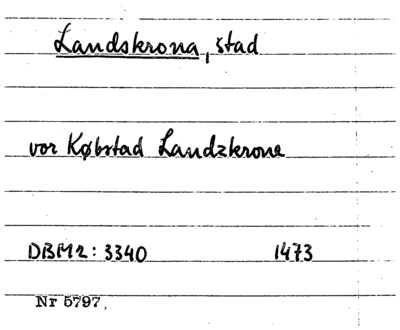 Landskrona, stad
vor Købstad Landzkrone
DBM2: 3340 1473
Nr 5797.